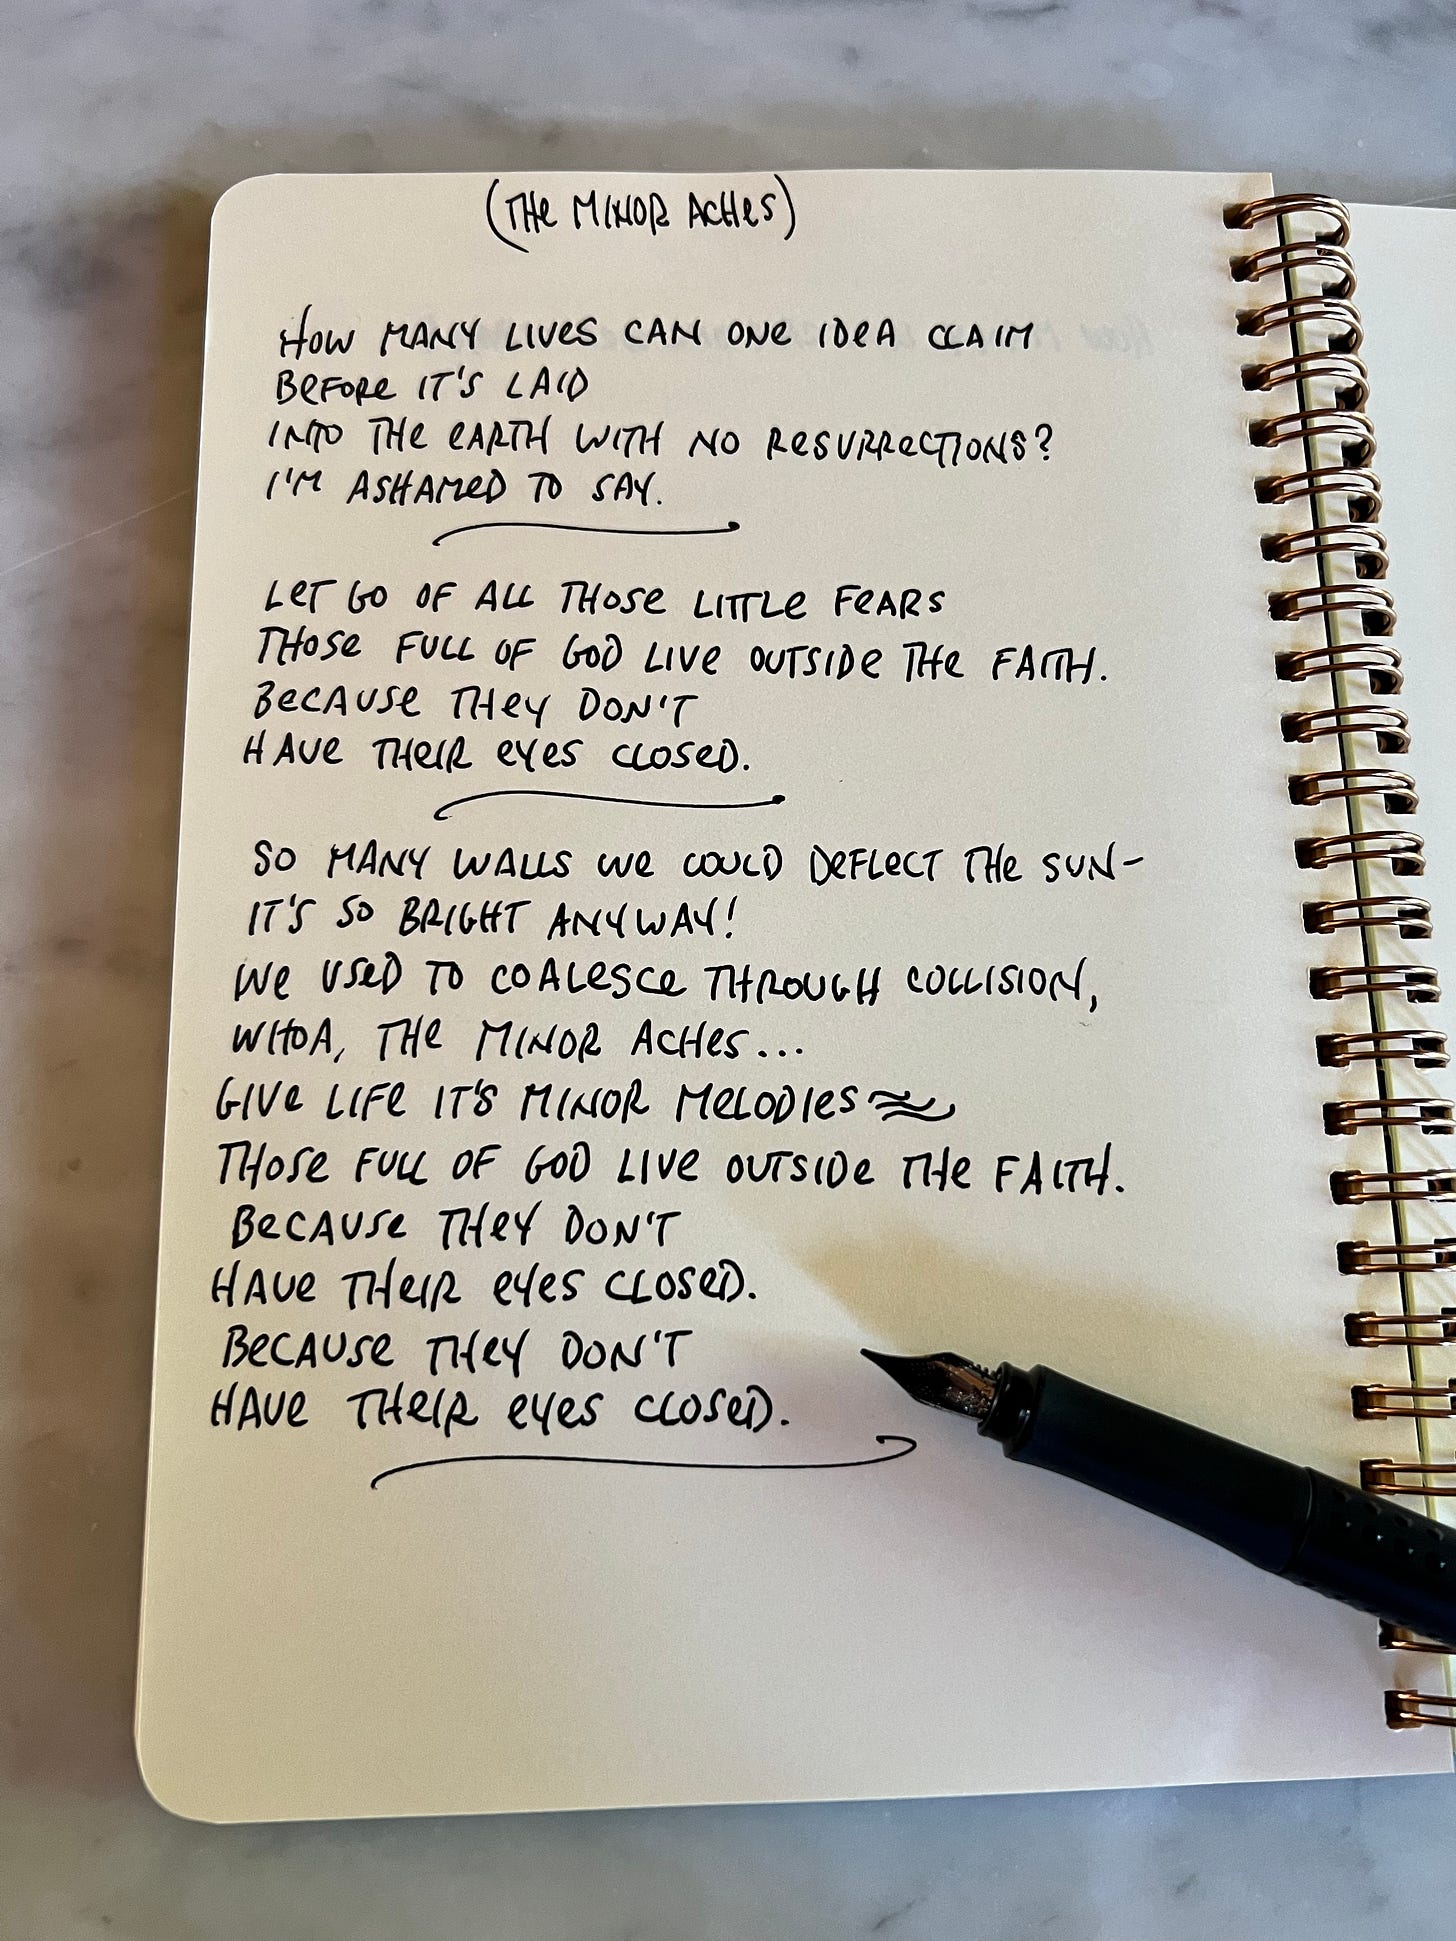 (THE MINOR ACHES)
HOW MANY LIVES CAN ONE IDEA CLAIM
BEFORE IT'S LAID
INTO THE EARTH WITH NO RESURRECTIONS?
I'M ASHAMED TO SAY.
LET GO OF ALL THOSE LITTLE FEARS
THOSE FULL OF GOD LIVE OUTSIDE THE FAITH.
BECAUSE THEY DON'T
HAVE THEIR EYES CLOSED.
SO MANY WALLS WE COULD DEFLECT THE SUN-
IT'S SO BRIGHT ANYWAY!
WE USED TO COALESCE THROUGH COLLISION,
WHOA, THE MINOR ACHES...
GIVE LIFE IT'S MINOR MELODIES
THOSE FULL OF GOD LIVE OUTSIDE THE FAITH.
BECAUSE THEY DON'T
HAVE THEIR EYES CLOSED.
BECAUSE THEY DON'T
HAVE THEIR EYES CLOSED.